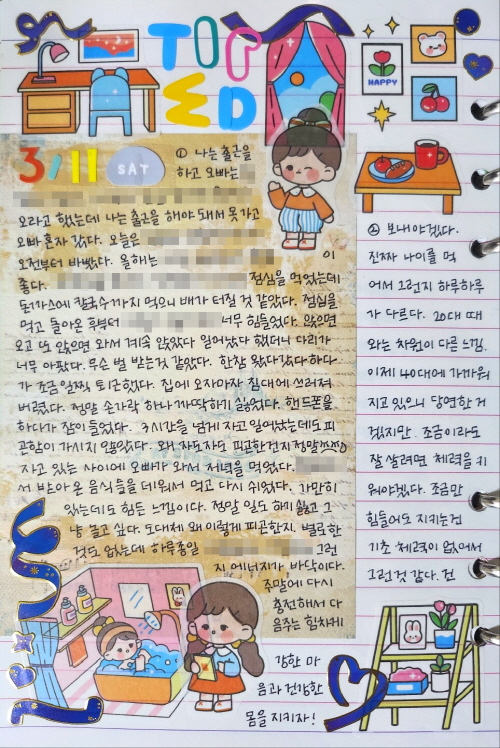 TIRED
HAPPY
3/11 SAT
① 나는 출근을
하고 오빠는
오라고 했는데 나는 출근을 해야 돼서 못가고
오빠 혼자 갔다. 오늘은
오전부터 바빴다. 올해는 이
좋다. 점심을 먹었는데
돈까스에 칼국수까지 먹으니 배가 터질 것 같았다. 점심을
먹고 돌아온 후부터 너무 힘들었다. 앉으면
오고 또 앉으면 와서 계속 앉았다 일어났다 했더니 다리가
너무 아팠다. 무슨 벌 받는것 같았다. 한참 왔다갔다하다
가 조금 일찍 퇴근했다. 집에 오자마자 침대에 쓰러져
버렸다. 정말 손가락 하나 까딱하기 싫었다. 핸드폰을
하다가 잠이 들었다. 3시간을 넘게 자고 일어났는데도 피
곤함이 가시지 않았다. 와, 자도자도 피곤한건지 정말
자고 있는 사이에 오빠가 와서 저녁을 먹었다.
서 받아온 음식들을 데워서 먹고 다시 쉬었다. 가만히
있는데도 힘든 느낌이다. 정말 일도 하기 싫고 그
냥 놀고 싶다. 도대체 왜 이렇게 피곤한지. 별로한
것도 없는데 하루종일 그런
지 에너지가 바닥이다.
주말에 다시
충전해서 다
음주는 힘차게
② 보내야겠다.
진짜 나이를 먹
어서 그런지 하루하루
가 다르다. 20대 때
와는 차원이 다른 느낌.
이제 40대에 가까워
지고 있으니 당연한 거
겠지만. 조금이라도
잘 살려면 체력을 키
워야겠다. 조금만
힘들어도 지키는건
기초 체력이 없어서
그런것 같다. 건
강한 마
음과 건강한
몸을 지키자!